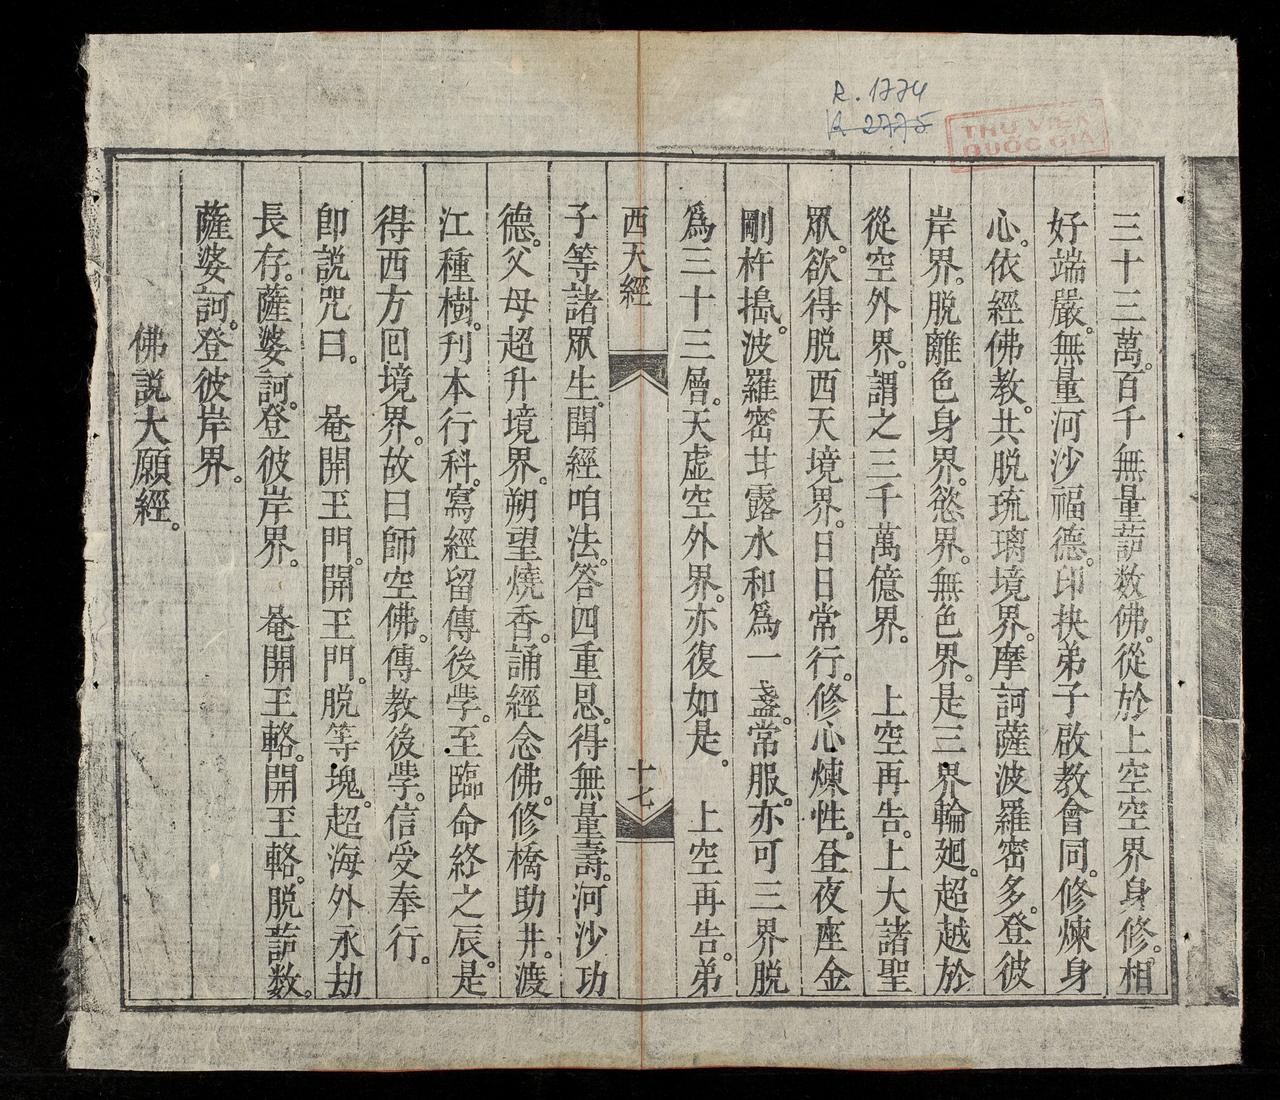 R. 1774
R 2775
THƯ VIỆN
QUỐC GIA
三十三萬。百千無量葩数佛。從於上空空界身修。相
好端嚴。無量河沙福德。印抉弟子啟教會同。修煉身
心。依經佛教。共脱琉璃境界。摩訶薩波羅密多。登彼
岸界。脱離色身界。慾界。無色界。是三界輪廻。超越於
從空外界。謂之三千萬億界。　上空再告。上大諸聖
眾。欲得脱西天境界。日日常行。修心煉性。昼夜座金
剛杵搗。波羅密甘露水和爲一盞。常服。亦可三界脱
爲三十三層。天虚空外界。亦復如是。　上空再告。弟
西天經　十七
子等諸眾生。聞經咱法。答四重恩。得無量壽。河沙功
德。父母超升境界。朔望燒香。誦經念佛。修橋助井。渡
江種樹。刋本行科。寫經留傳後斈。至臨命終之辰。是
得西方回境界。故曰師空佛。傳教後斈。信受奉行。
卽説咒曰。　菴開王門。開王門。脱等塊。超海外永劫
長存。薩婆訶。登彼岸界。　菴開王輅。開王輅。脱葩数。
薩婆訶。登彼岸界。
佛説大願經。